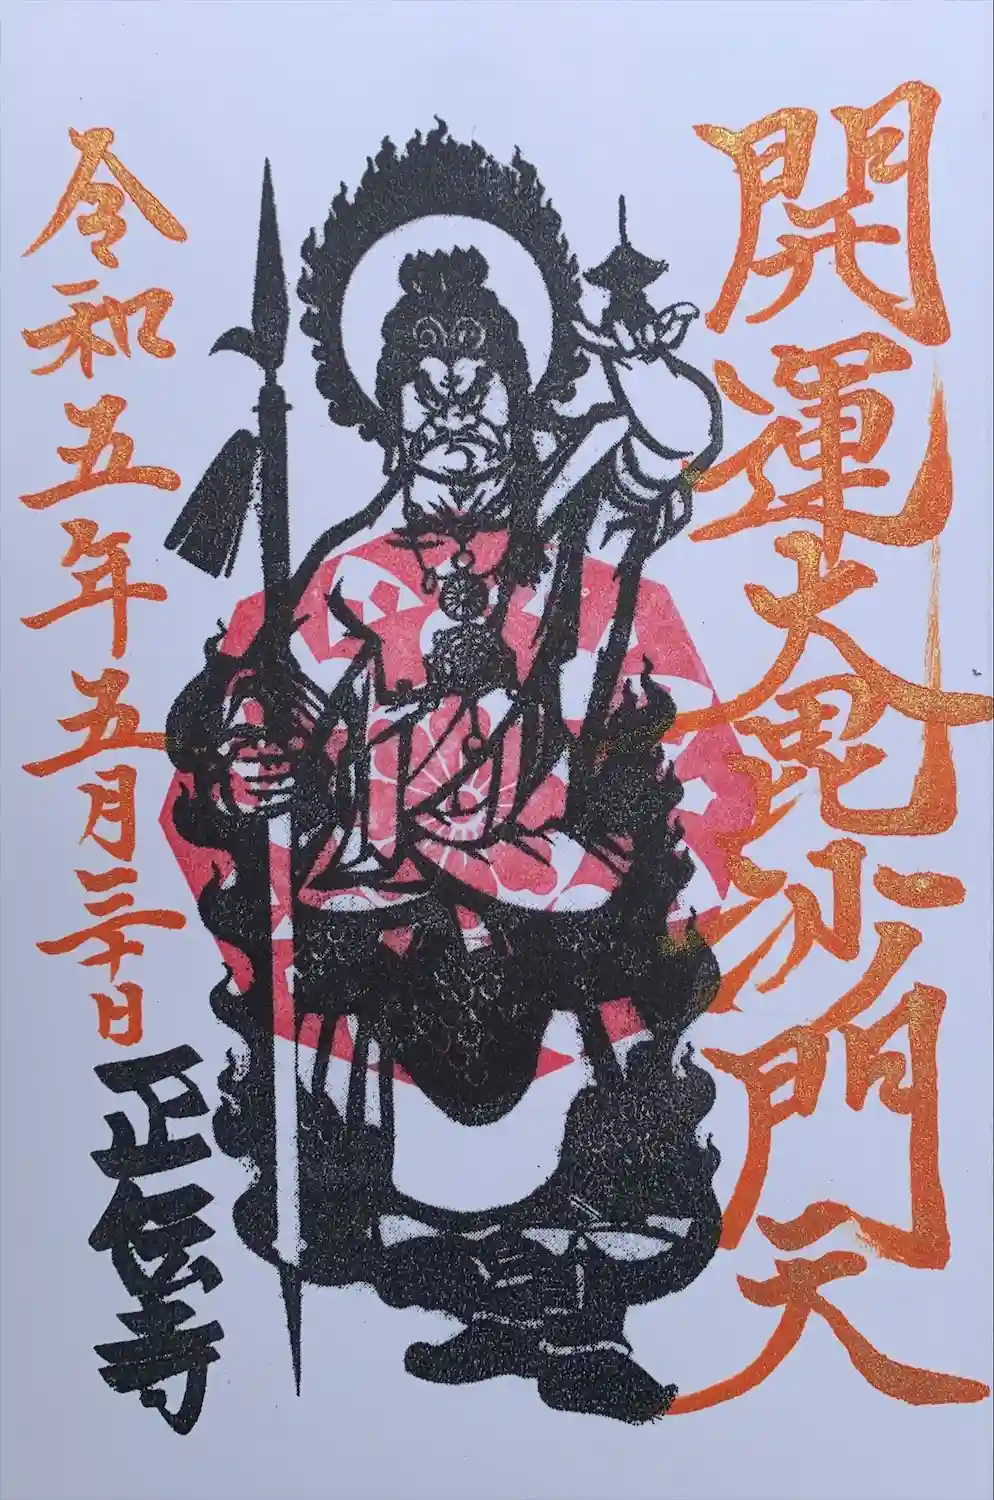 開運大毘沙門天
令和五年五月三十日
正伝寺